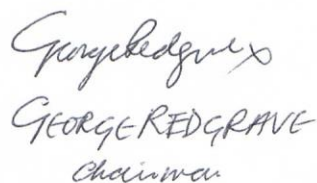 George Redgrave
GEORGE REDGRAVE
Chairman